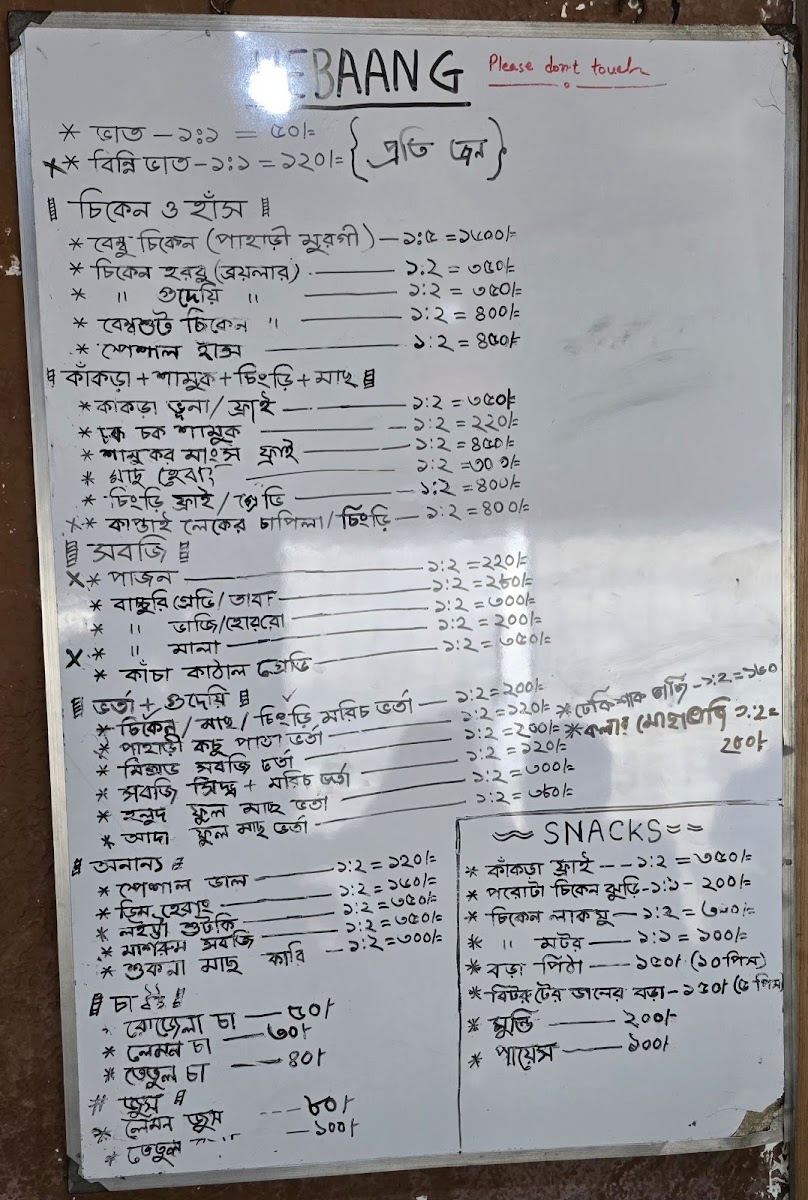 HEBAANG
Please don't touch
* ভাত - ১:১ = ৫০/=
x* বিন্নি ভাত - ১:১ = ১২০/= { প্রতি জন }
চিকেন ও হাঁস
* বেম্বু চিকেন (পাহাড়ী মুরগী) — ১:৫ = ১৫০০/=
* চিকেন হরবু (ব্রয়লার) — ১:২ = ৩৫০/=
* " গুদেয়ি " — ১:২ = ৩৫০/=
* বেম্বুশুট চিকেন " — ১:২ = ৪০০/=
* স্পেশাল হাঁস — ১:২ = ৪৫০/-
কাঁকড়া + শামুক + চিংড়ি + মাছ
* কাঁকড়া ভুনা / ফ্রাই — ১:২ = ৩৫০/-
* চক চক শামুক — ১:২ = ২২০/-
* শামুকের মাংস ফ্রাই — ১:২ = ৪৫০/=
* মাছ হেবাং — ১:২ = ৩০০/=
* চিংড়ি ফ্রাই / গ্রেভি — ১:২ = ৪০০/=
x* কাপ্তাই লেকের চাপিলা / চিংড়ি — ১:২ = ৪০০/=
সবজি
x* পাজন — ১:২ = ২২০/=
* বাচ্চুরি গ্রেভি / তাবা — ১:২ = ২৮০/=
* " ভাজি/হোররো — ১:২ = ৩০০/=
x* " মালা — ১:২ = ২০০/=
* কাঁচা কাঠাল গ্রেভি — ১:২ = ৩৫০/=
ভর্তা + গুদেয়ি
* চিকেন / মাছ / চিংড়ি মরিচ ভর্তা — ১:২ = ২০০/=
* পাহাড়ী কচু পাতা ভর্তা — ১:২ = ১২০/=
* মিক্সড সবজি ভর্তা — ১:২ = ২০০/=
* সবজি সিদ্ধ + মরিচ ভর্তা — ১:২ = ১২০/=
* হলুদ ফুল মাছ ভর্তা — ১:২ = ৩০০/=
* আদা ফুল মাছ ভর্তা — ১:২ = ৩৮০/=
* ঢেকিশাক ভাজি - ১:২ = ১৬০
* কলার মোচা ভাজি ১:২ =
২০০/-
অনান্য
* স্পেশাল ডাল — ১:২ = ১২০/=
* ডিম হেবাং — ১:২ = ১৫০/=
* লইট্টা শুটকি — ১:২ = ৩৫০/=
* মাশরুম সবজি — ১:২ = ৩৫০/=
* শুকনা মাছ কারি — ১:২ = ৩০০/=
চা
* রোজেলা চা — ৫০/-
* লেমন চা — ৩০/-
* তেতুল চা — ৪০/-
# জুস
* লেমন জুস --- ৮০/-
* তেতুল " --- ১০০/-
SNACKS
* কাঁকড়া ফ্রাই --- ১:২ = ৩৫০/=
* পরোটা চিকেন ঝুড়ি - ১:১ - ২০০/=
* চিকেন লাকসু — ১:২ = ৩০০/=
* " মটর — ১:১ = ১০০/=
* বড়া পিঠা — ১৫০/- (১০ পিস)
* বিটরুটের ডালের বড়া - ১৫০/- (৫ পিস)
* মুন্ডি — ২০০/-
* পায়েস — ১০০/-